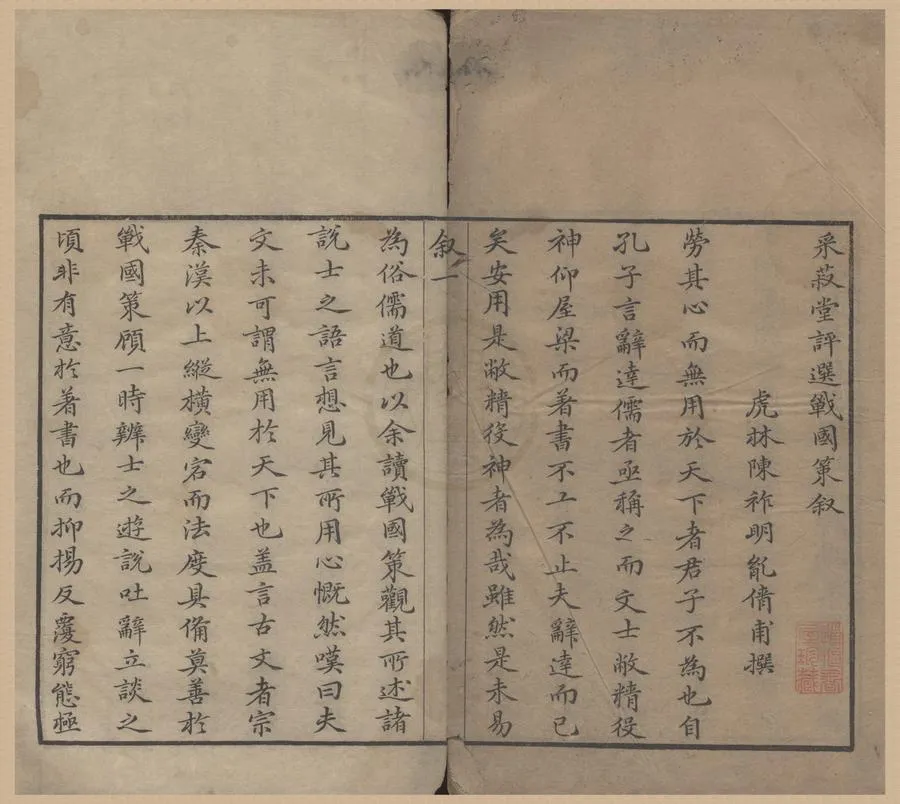 采菽堂評選戰國策叙
虎林陳祚明胤倩甫撰
勞其心而無用於天下者君子不為也自
孔子言辭達儒者亟稱之而文士敝精役
神仰屋梁而著書不工不止夫辭達而已
矣安用是敝精役神者為哉雖然是未易
叙一
為俗儒道也以余讀戰國策觀其所述諸
說士之語言想見其所用心慨然嘆曰夫
文未可謂無用於天下也盖言古文者宗
秦漢以上縱橫變宕而法度具備莫善於
戰國策顧一時辨士之遊說吐辭立談之
頃非有意於著書也而抑揚反覆窮態極